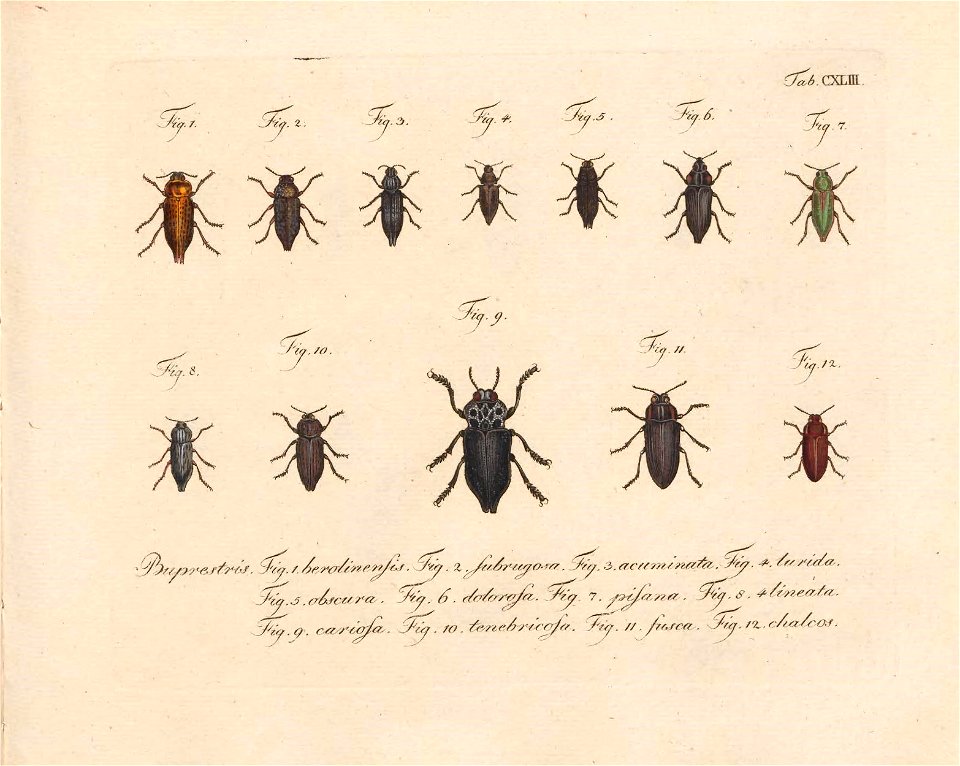 Tab. CXLIII.
Fig. 1. Fig. 2. Fig. 3. Fig. 4. Fig. 5. Fig. 6. Fig. 7.
Fig. 8. Fig. 10. Fig. 9. Fig. 11. Fig. 12.
Buprestris. Fig. 1. berolinenſis. Fig. 2. ſubrugosa. Fig. 3. acuminata. Fig. 4. lurida.
Fig. 5. obscura. Fig. 6. doloroſa. Fig. 7. piſana. Fig. 8. 4lineata.
Fig. 9. carioſa. Fig. 10. tenebricoſa. Fig. 11. fusca. Fig. 12. chalcos.